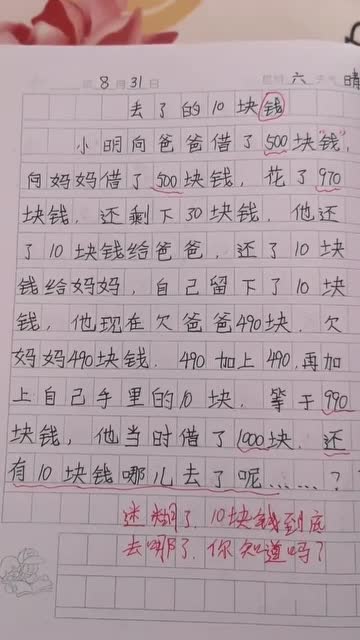 8月31日 六 晴
去了的10块钱
小明向爸爸借了500块“钱”,
向妈妈借了500块钱,花了970
块钱,还剩下30块钱,他还
了10块钱给爸爸,还了10块
钱给妈妈,自己留下了10块
钱,他现在欠爸爸490块,欠
妈妈490块钱,490加上490,再加
上自己手里的10块,等于990
块钱,他当时借了1000块,还
有10块钱哪儿去了呢……?
迷糊了,10块钱到底
去哪了,你知道吗?